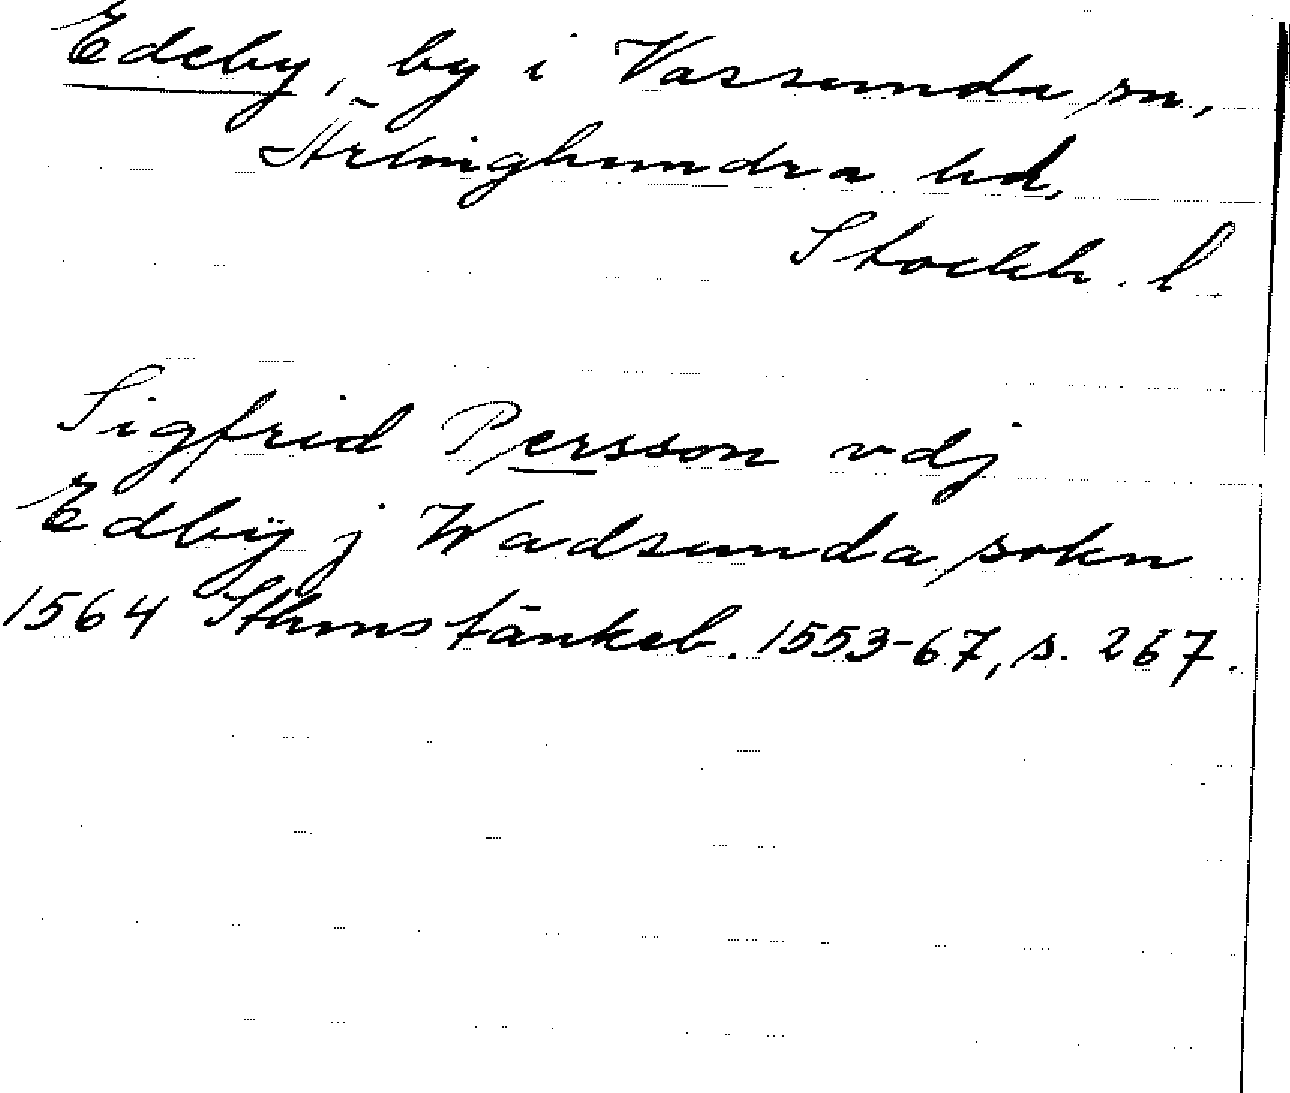 Edeby, by i Vassunda sn,
Ärlinghundra hd,
Stockh. l
Sigfrid Persson vdj
Edbÿ j Wadsunda sokn
1564 Sthms tänkeb. 1553-67, s. 267.